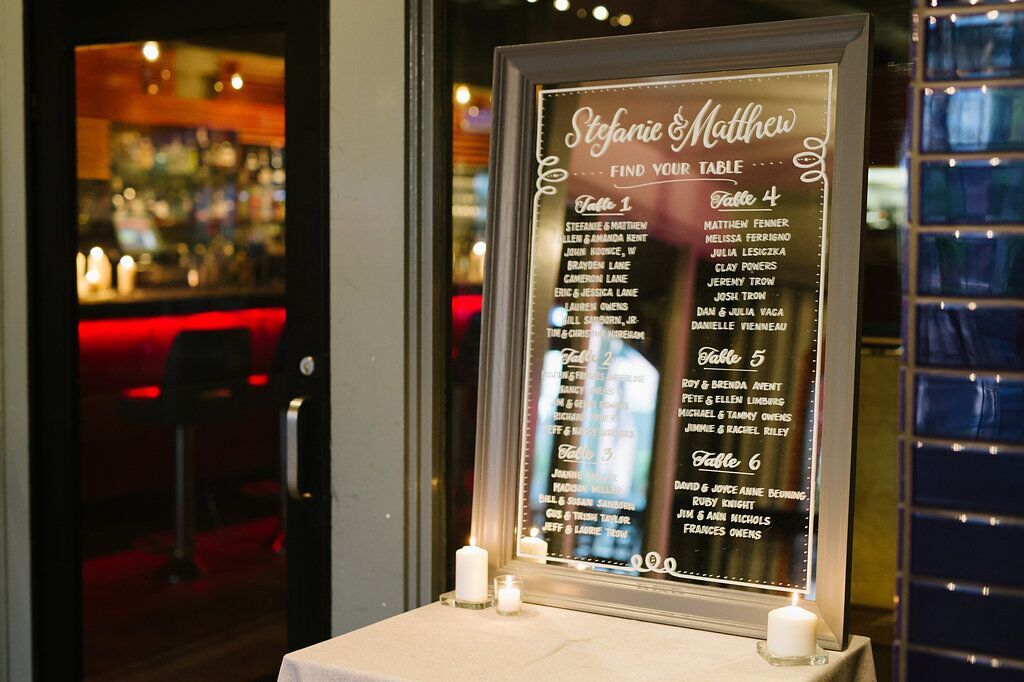 Stefanie & Matthew
FIND YOUR TABLE
Table 1
STEFANIE & MATTHEW
ALLEN & AMANDA KENT
JOHN KOONCE, IV
BRAYDEN LANE
CAMERON LANE
ERIC & JESSICA LANE
LAUREN OWENS
BILL SANBORN, JR.
TIM & CHRISTINA WAREHAM
Table 2
NANCY
JIM &
RICHARD POWERS
JEFF & NANCY
Table 3
JOANNE MILLER
MADISON MILLER
BILL & SUSAN SANBORN
GUS & TRISH TAYLOR
JEFF & LAURIE TROW
Table 4
MATTHEW FENNER
MELISSA FERRIGNO
JULIA LESICZKA
CLAY POWERS
JEREMY TROW
JOSH TROW
DAN & JULIA VACA
DANIELLE VIENNEAU
Table 5
ROY & BRENDA AVENT
PETE & ELLEN LIMBURG
MICHAEL & TAMMY OWENS
JIMMIE & RACHEL RILEY
Table 6
DAVID & JOYCE ANNE BEUNING
RUBY KNIGHT
JIM & ANN NICHOLS
FRANCES OWENS